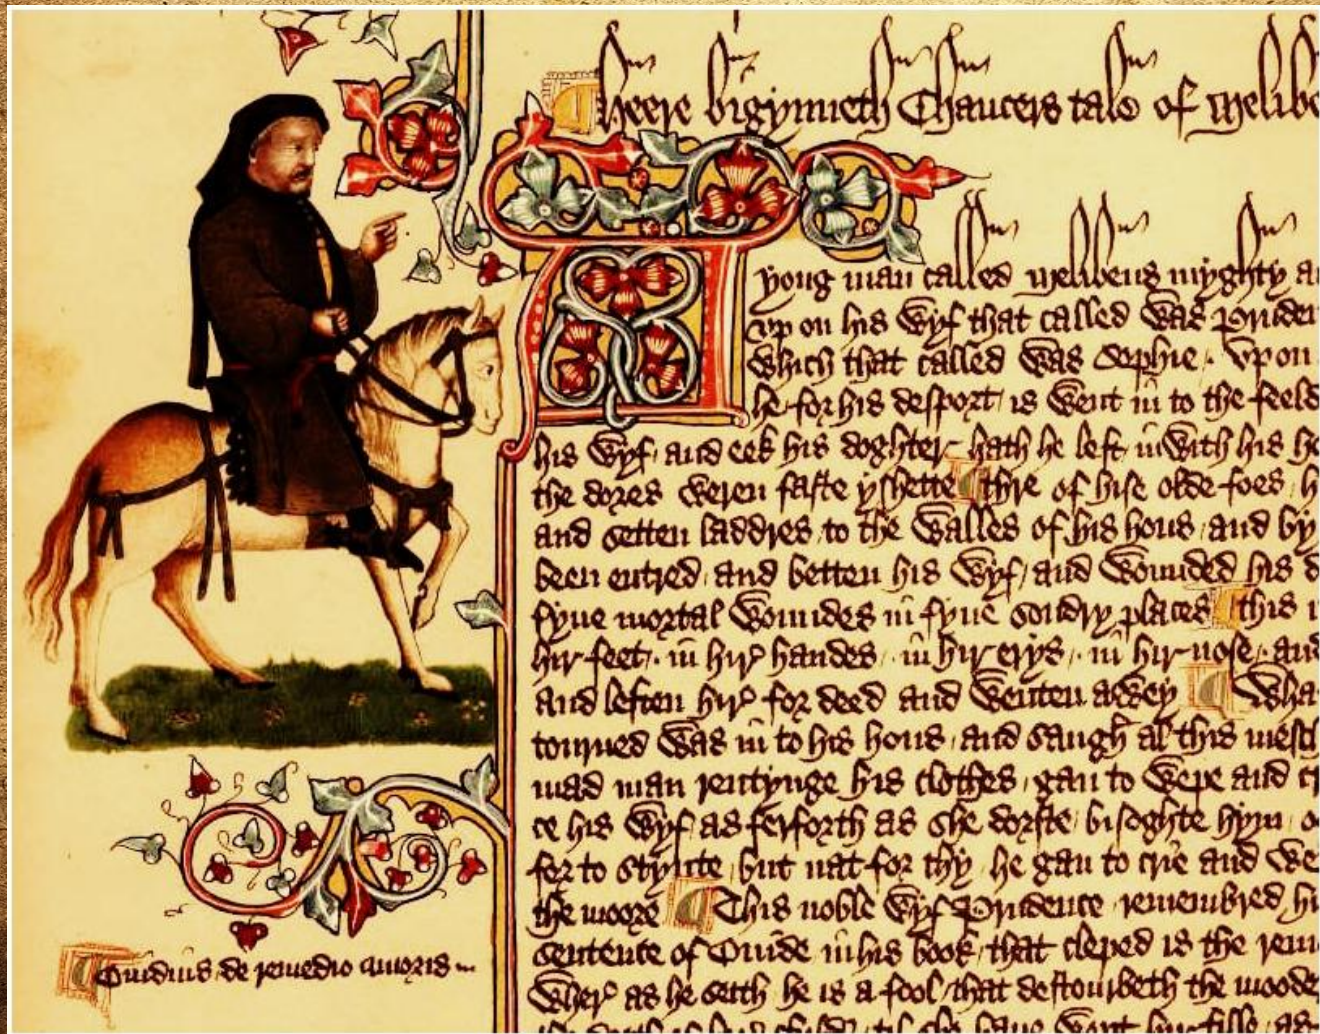 Heere bigynneth Chaucers tale of Melibe
A yong man called Melibeus myghty a
up on his wyf that called was Pruden
which that called was Sophie. Upon
he for his desport is went in to the feeld
his wyf and eek his doghter hath he left inwith his h
the dores weren faste yshette thre of hise olde foes h
and setten laddres to the walles of his hous and by
been entred and betten his wyf and wounded his d
fyue mortal woundes in fyue sondry places this i
hir feet. in hir handes. in hir erys. in hir nose. and
and leften hir for deed and wenten awey Wha
tourned was in to his hous and saugh al this mescl
mad man rentynge his clothes gan to wepe and cr
ce his wyf as ferforth as she dorste bisoghte hym o
for to stynte but nat for thy he gan to crie and we
the moore This noble wyf Prudence remembred hi
sentence of Ouide in his book that cleped is the rem
wher as he seith he is a fool that destourbeth the mooder
Ouidius de remedio amoris